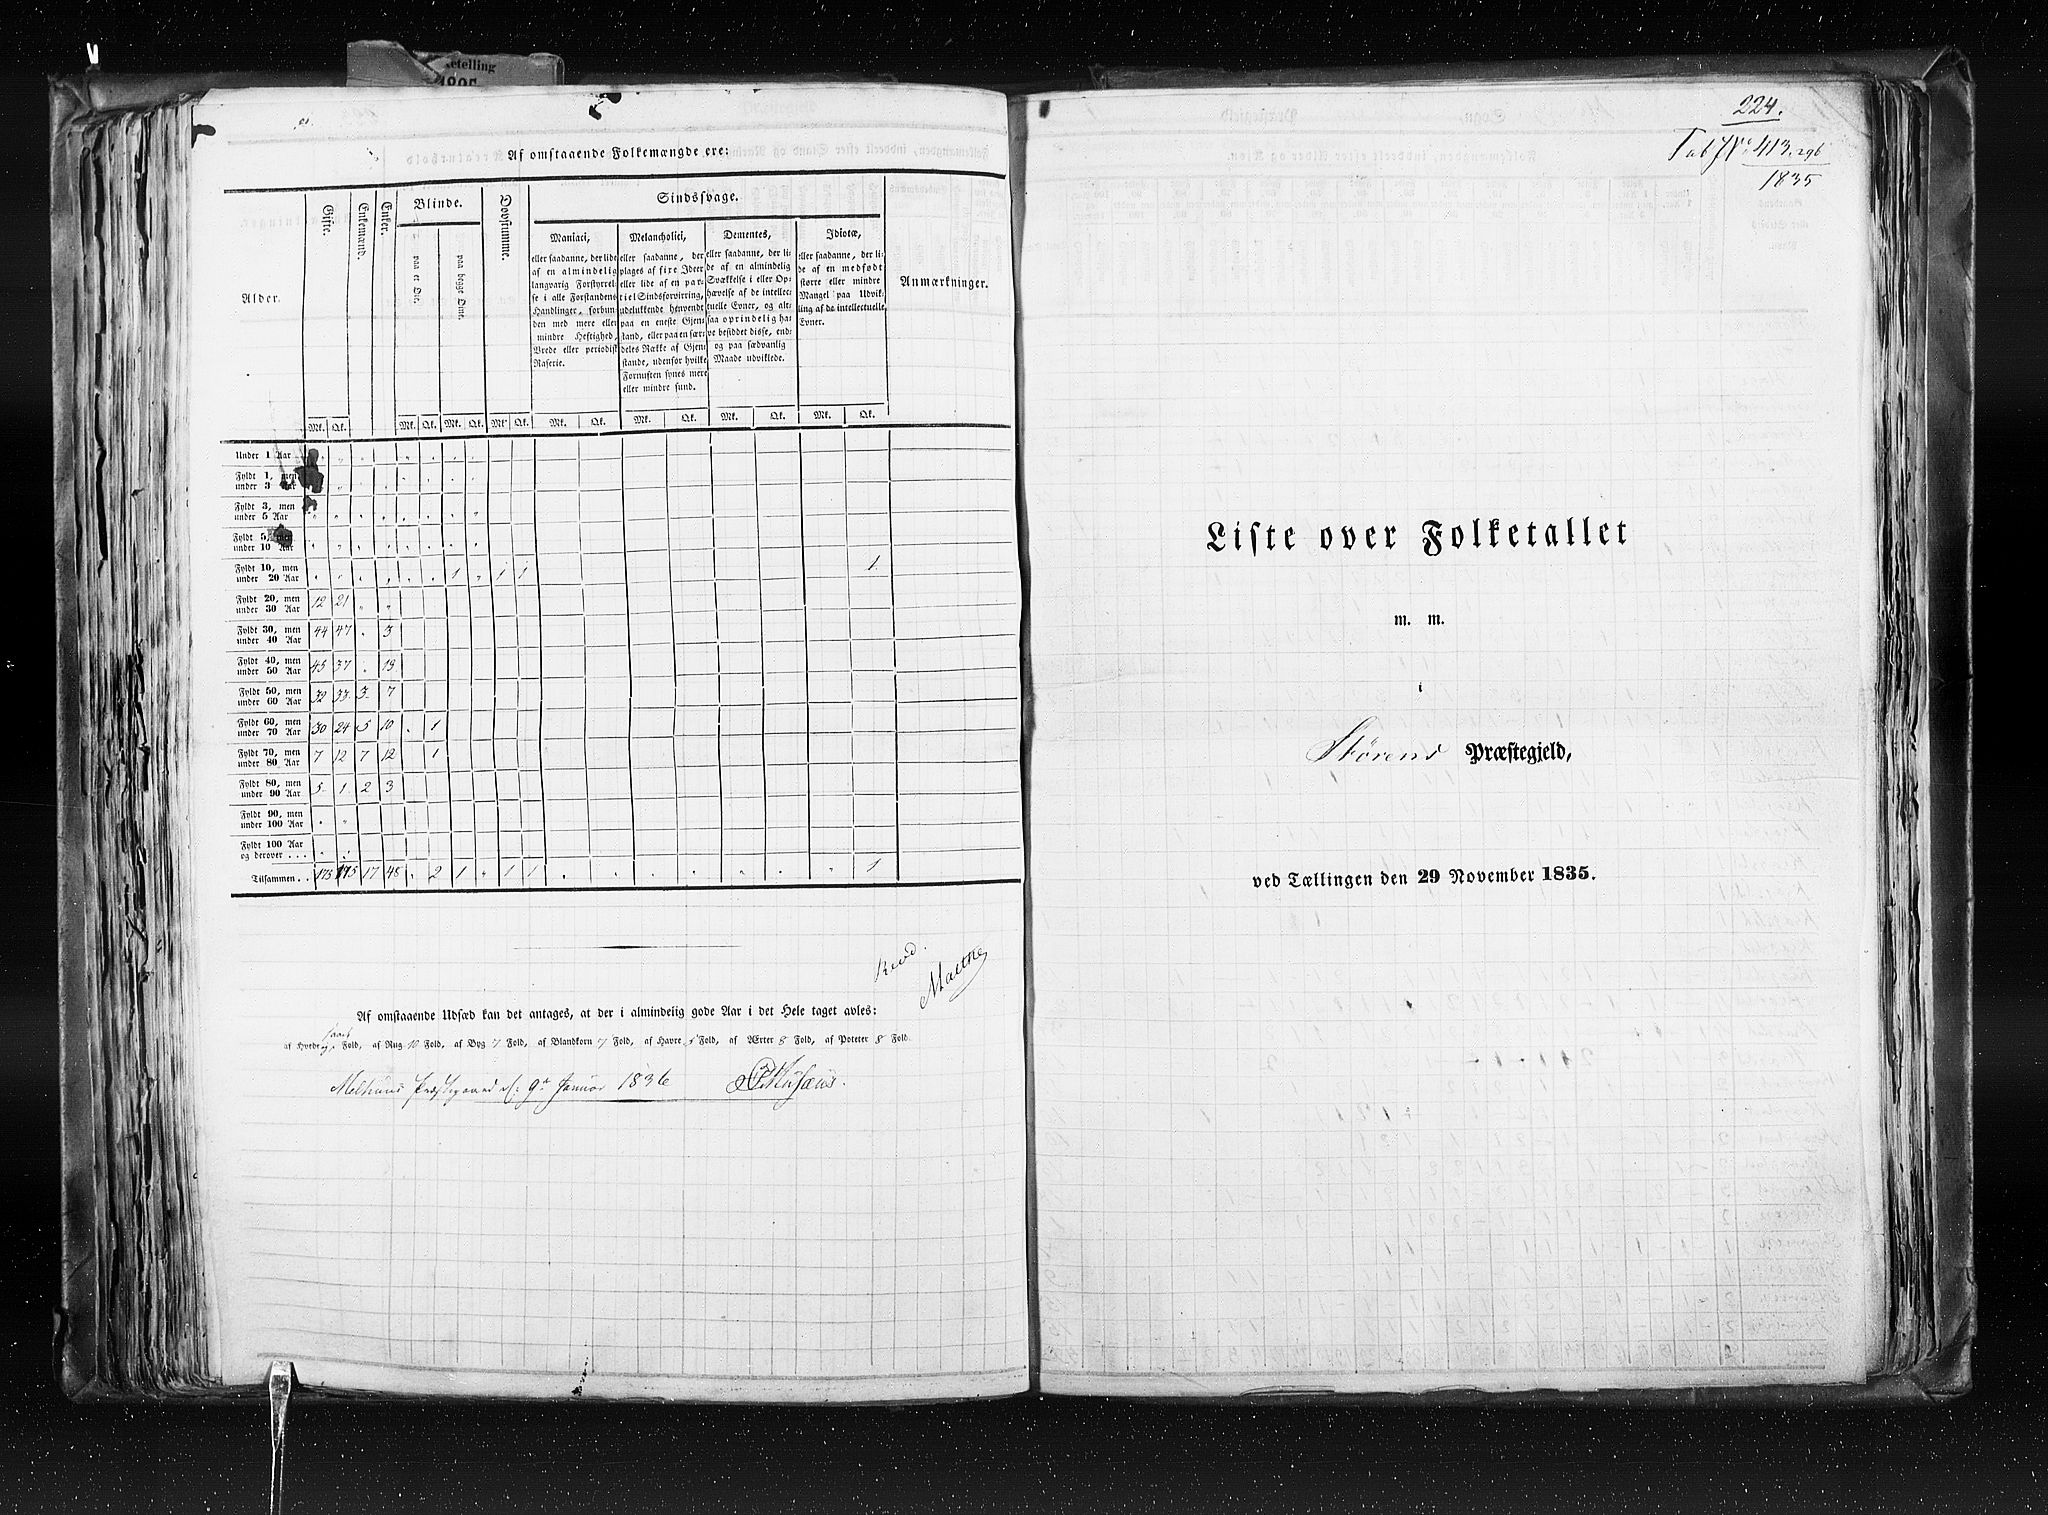 ketelling
Af omstaaende Folkemængde ere:
Alder. Gifte. Enkemænd. Enker. Blinde. Døvstumme. Sindssvage. Anmærkninger.
paa et Øie. paa begge Øine.
Maniaci,
eller saadanne, der lide
af en almindelig
langvarig Forstyrrel-
se i alle Forstandens
Handlinger, forbun-
den med mere eller
mindre Heftighed,
Vrede eller periodisk
Raserie.
Melancholici,
eller saadanne, der
plages af fixe Ideer
eller lide af en par-
tiel Sindsforvirring,
udelukkende henvendt
paa en eneste Gjen-
stand, eller paa en sær-
deles Række af Gjen-
stande, udenfor hvilke
Fornuften synes mere
eller mindre sund.
Dementes,
eller saadanne, der li-
de af en almindelig
Svækkelse i eller Op-
hævelse af de intellec-
tuelle Evner, og alt-
saa oprindelig ha-
ve besiddet disse, end-
og paa sædvanlig
Maade udviklede.
Idiotæ,
eller saadanne, der li-
de af en medfødt
større eller mindre
Mangel paa Udvik-
ling af de intellectuelle
Evner.
Mk. Qk. Mk. Qk. Mk. Qk. Mk. Qk. Mk. Qk. Mk. Qk. Mk. Qk. Mk. Qk.
Under 1 Aar
Fyldt 1, men
under 3 Aar
Fyldt 3, men
under 5 Aar
Fyldt 5, men
under 10 Aar
Fyldt 10, men
under 20 Aar 1 " 1 1 1
Fyldt 20, men
under 30 Aar 12 21 " "
Fyldt 30, men
under 40 Aar 44 47 " 3
Fyldt 40, men
under 50 Aar 45 37 " 13
Fyldt 50, men
under 60 Aar 32 33 3 7
Fyldt 60, men
under 70 Aar 30 24 5 10 " 1
Fyldt 70, men
under 80 Aar 7 12 7 12 1
Fyldt 80, men
under 90 Aar 5 1 2 3
Fyldt 90, men
under 100 Aar " "
Fyldt 100 Aar
og derover . . . " "
Tilsammen . . 173 175 17 48 " 2 1 " 1 1 " " " " " " " 1
Revd.
Malthe
Af omstaaende Udsæd kan det antages, at der i almindelig gode Aar i det Hele taget avles:
af Hvede Fold, af Rug 10 Fold, af Byg 7 Fold, af Blandkorn 7 Fold, af Havre 5 Fold, af Ærter 8 Fold, af Poteter 8 Fold.
Melhuus Præstegaard d: 9de Januar 1836
224.
Tab No 413. 296
1835
Liste over Folketallet
m. m.
i
Størens Præstegjeld,
ved Tællingen den 29 November 1835.